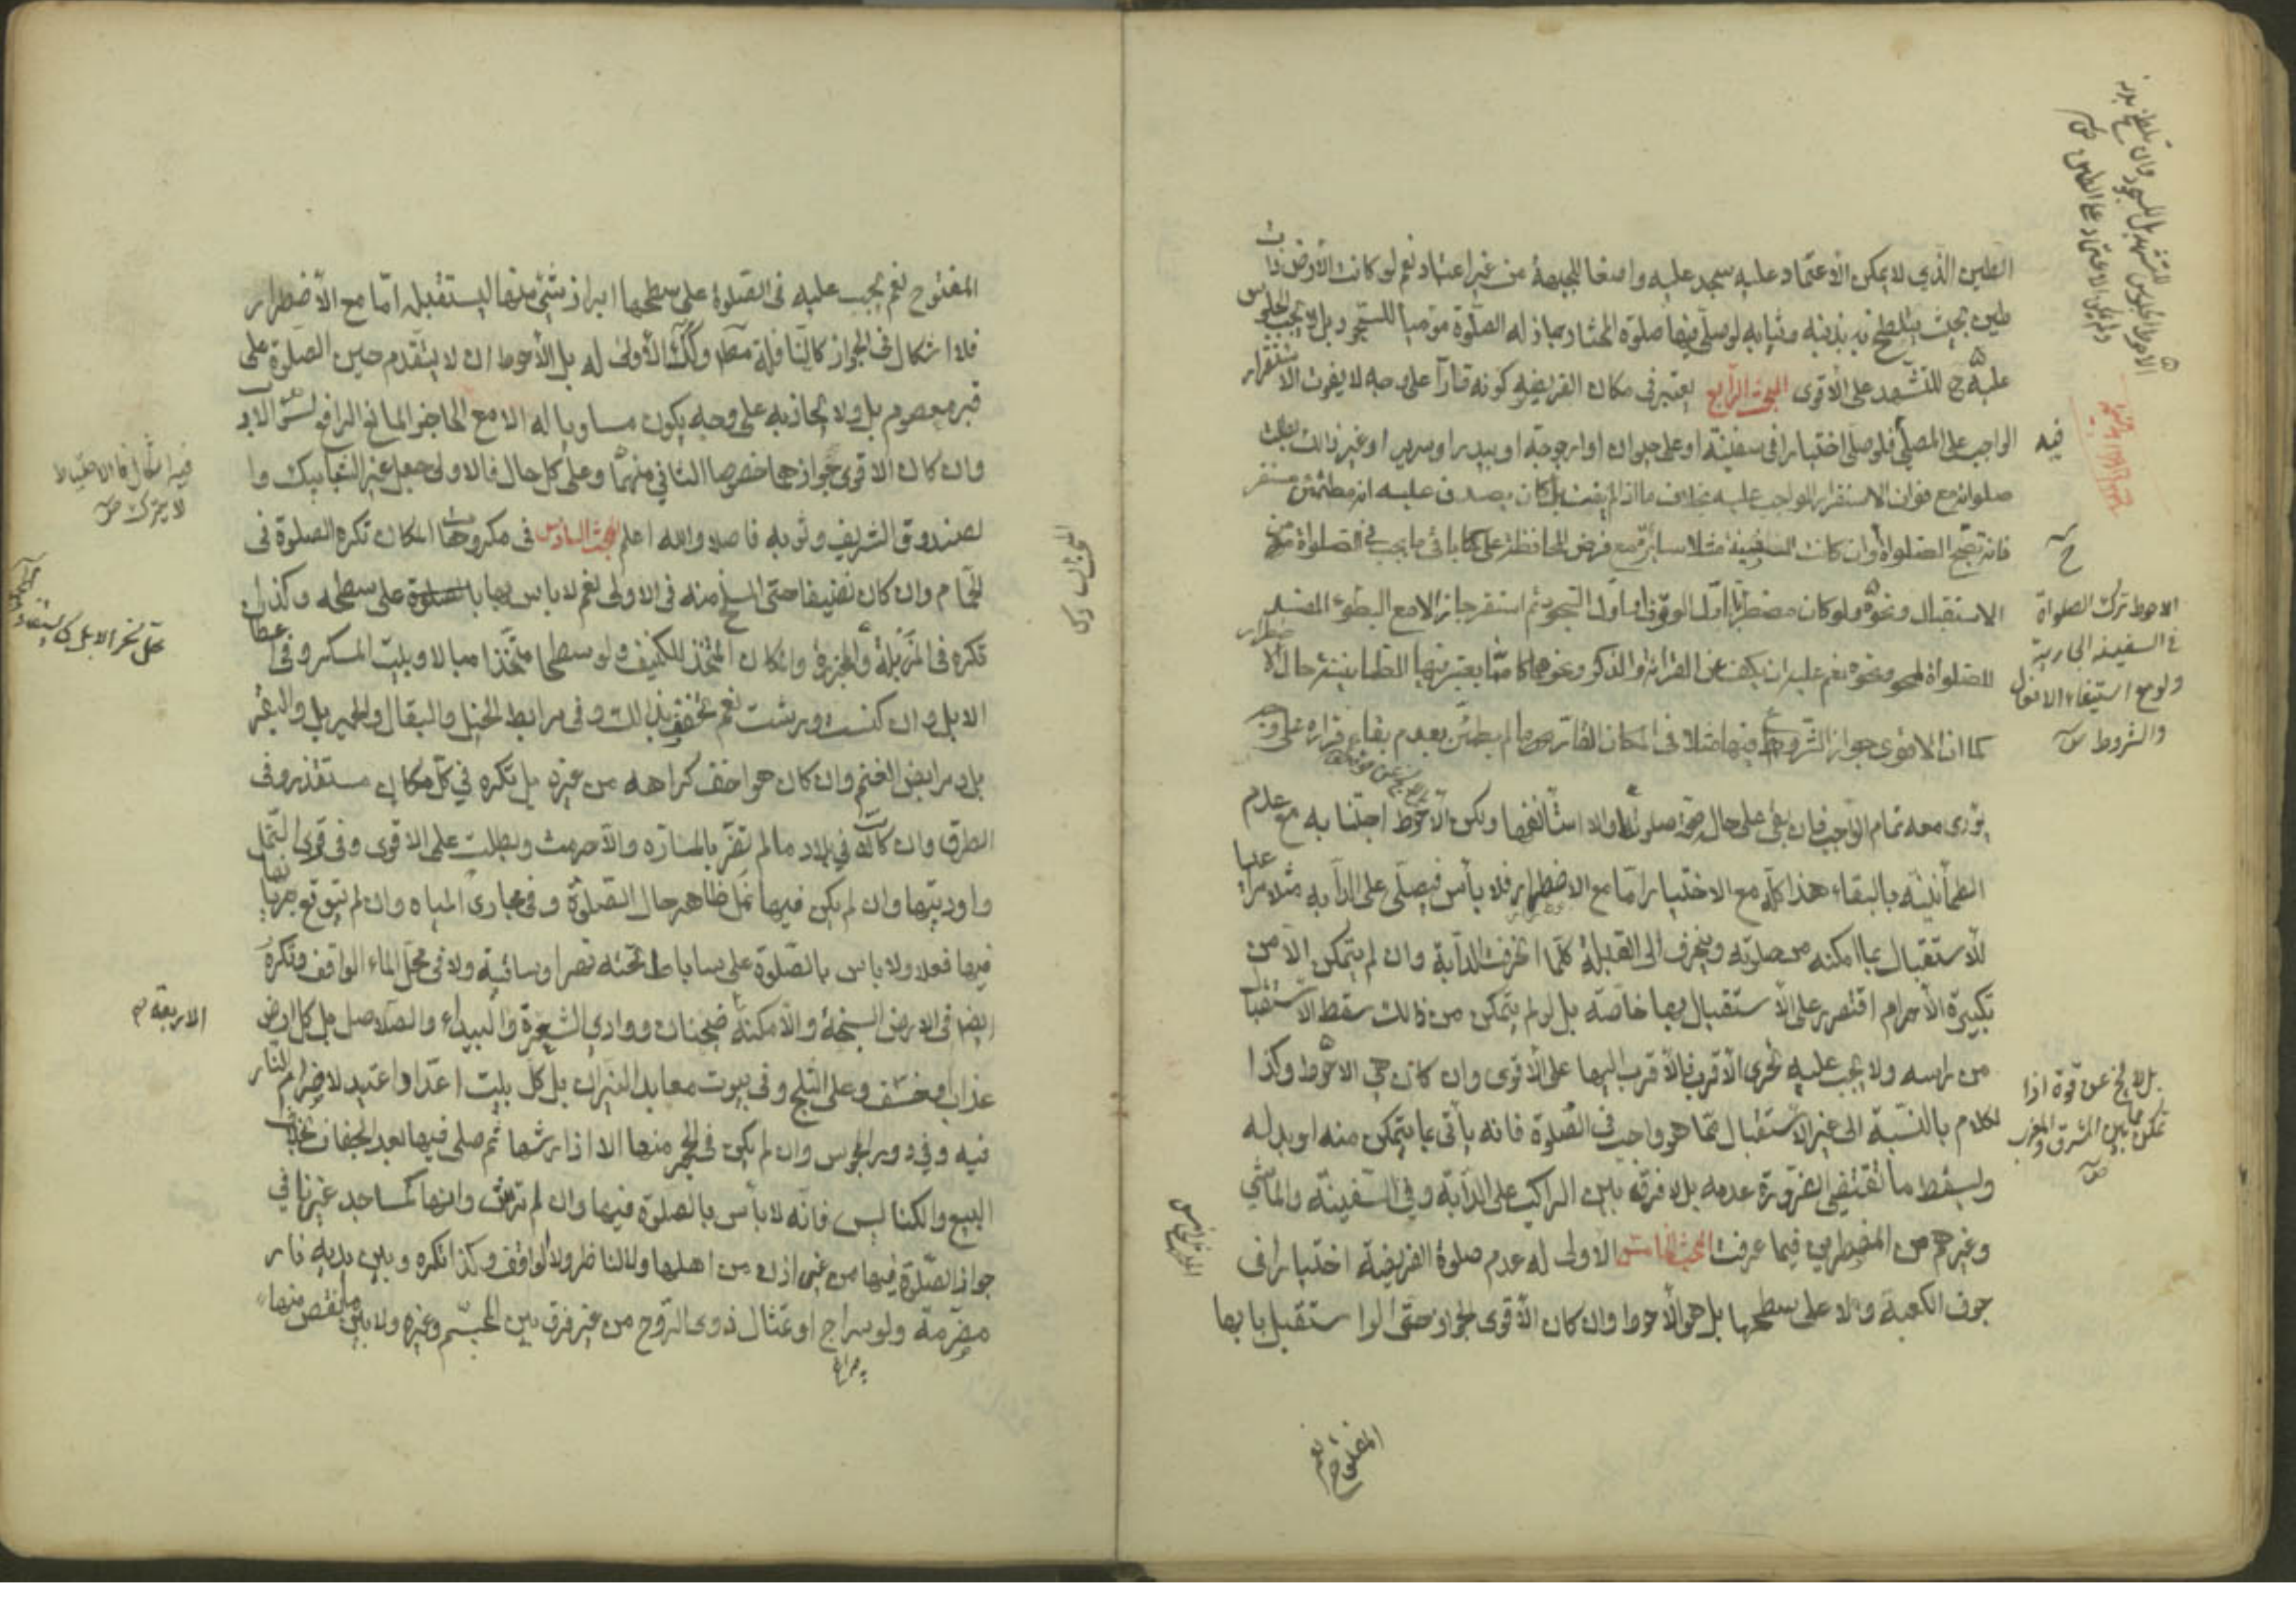 الطين الذي لا يمكن الاعتماد عليه سجد عليه واضعا للجبهة من غير اعتماد نعم لو كانت الأرض ذا
طين بحيث يتلطخ به بدنه وثيابه لو صلى فيها صلوة المختار جاز له الصلوة موميا للسجود بل لا يجب الجلوس
عليه ح للتشهد على الأقوى المبحث الرابع يعتبر في مكان الفريضة كونه قارا على وجه لا يفوت الاستقرار
الواجب على المصلي فلو صلى اختيارا في سفينة او على حيوان او ارجوحة او بيدر او سرير او غير ذلك بطلت
صلواته مع فوات الاستقرار الواجب عليه بخلاف ما اذا لم يفت بل كان يصدق عليه انه مطمئن مستقر
فانه تصح الصلواة وان كانت السفينة مثلا سائرة مع فرض المحافظة على باقي ما يجب في الصلواة من
الاستقبال ونحوه ولو كان مضطربا اول الوقوف او اول السجود ثم استقر جاز الا مع البطوء المفسد
للصلواة لمحو ونحوه نعم عليه ان يكف عن القرائة والذكر ونحوهما مما يعتبر فيها الطمانينة حال الاضطرار
كما ان الاقوى جواز الشروع فيها مثلا في المكان القار وما لم يطمئن بعدم بقاء قراره على وجه
يؤدى معه تمام الواجب فان بقى على حاله صحت صلوته والا استأنفها ولكن الأحوط اجتنابه مع عدم
الطمأنينة بالبقاء هذا كله مع الاختيار امّا مع الاضطرار فلا بأس فيصلّى على الدابه مثلا مراعيا
للاستقبال بما امكنه من صلوته وينحرف الى القبلة كلما انحرفت الدابة وان لم يتمكن الا من
تكبيرة الأحرام اقتصر على الأستقبال بها خاصّه بل لو لم يتمكن من ذلك سقط الاستقبال
من راسه ولا يجب عليه تحرى الأقرب فالأقرب اليها على الأقوى وان كان هي الاحوط وكذا
الكلام بالنسبة الى غير الاستقبال مما هو واجب في الصلوة فانه يأتى بما يتمكن منه او بدله
ويسقط ما تقتضى الضرورة عدمه بلا فرق بين الراكب على الدابة وفي السفينة والماشي
وغيرهم من المضطرين فيما عرفت المبحث الخامس الاولى له عدم صلوة الفريضة اختيارا في
جوف الكعبة ولا على سطحها بل هو الأحوط وان كان الأقوى الجواز حتى لو استقبل بابها
المفتوح نعم
فيه
الاحوط ترك الصلواة
في السفينة الجارية
ولو مع استيفاء الافعال
والشروط
بل لا يخ عن قوة اذا
تمكن ما بين المشرق والمغرب
المبحث الخامس
المفتوح نعم يجب عليه في الصلوة على سطحها ابراز شئ منها ليستقبله امّا مع الأضطرار
فلا اشكال في الجواز كالنافلة مطلقا وكك الأولى له بل الأحوط ان لا يتقدم حين الصلوة على
قبر معصوم بل ولا يحاذيه على وجه يكون مساويا له الا مع الحاجز المانع الرافع لسوء الادب
وان كان الاقوى جوازهما خصوصا الثاني منهما وعلى كل حال فالاولى جعل غير الشبابيك و
لصندوق الشريف وثوبه فاصلا والله اعلم المبحث السادس في مكروهات المكان تكره الصلوة في
الحمام وان كان نضيفا حتى المسلخ منه في الاولى نعم لا باس بها على سطحه وكذلك
تكره في المزبلة والمجزرة والمكان المتخذ للكنيف ولو سطحا متخذا مبالا وبيت المسكر وفي اعطان
الابل وان كنست ورشت نعم تخفف بذلك وفي مرابط الخيل والبقال والحمير بل والبقر
بل ومرابض الغنم وان كان هو اخف كراهه من غيره بل تكره في كل مكان مستقذر وفي
الطرق وان كانت في بلاد ما لم تضر بالمارّه والا حرمت وبطلت على الاقوى وفي قرى النمل
واوديتها وان لم يكن فيها نمل ظاهر حال الصلوة وفي مجارى المياه وان لم يتوقع جريانها
فيها فعلا ولا باس بالصلوة على ساباط تحته نهر او ساقية ولا في محل الماء الواقف وتكره
ايضا في الارض السبخة والأمكنة ضجنان ووادي الشقرة والبيداء والصلاصل بل كل ارض
عذاب او خسف وعلى الثلج وفي بيوت معابد النيران بل كل بيت اعد او اعتيد لاضرام النار
فيه وفي دور المجوس وان لم يكن في الحجر منها الا اذا رشها ثم صلى فيها بعد الجفاف بخلاف
البيع والكنايس فانه لا بأس بالصلوة فيها وان لم ترش وانها كمساجد غيرنا في
جواز الصلوة فيها من غير اذن من اهلها ولا الناظر ولا الواقف وكذا تكره وبين يديه نار
مضرمة ولو سراج او تمثال ذوى الروح من غير فرق بين المجسم وغيره ولا بين ما نقص منها
فيه اشكال فالاحتياط
لا يترك
الاربعة
المبحث السادس